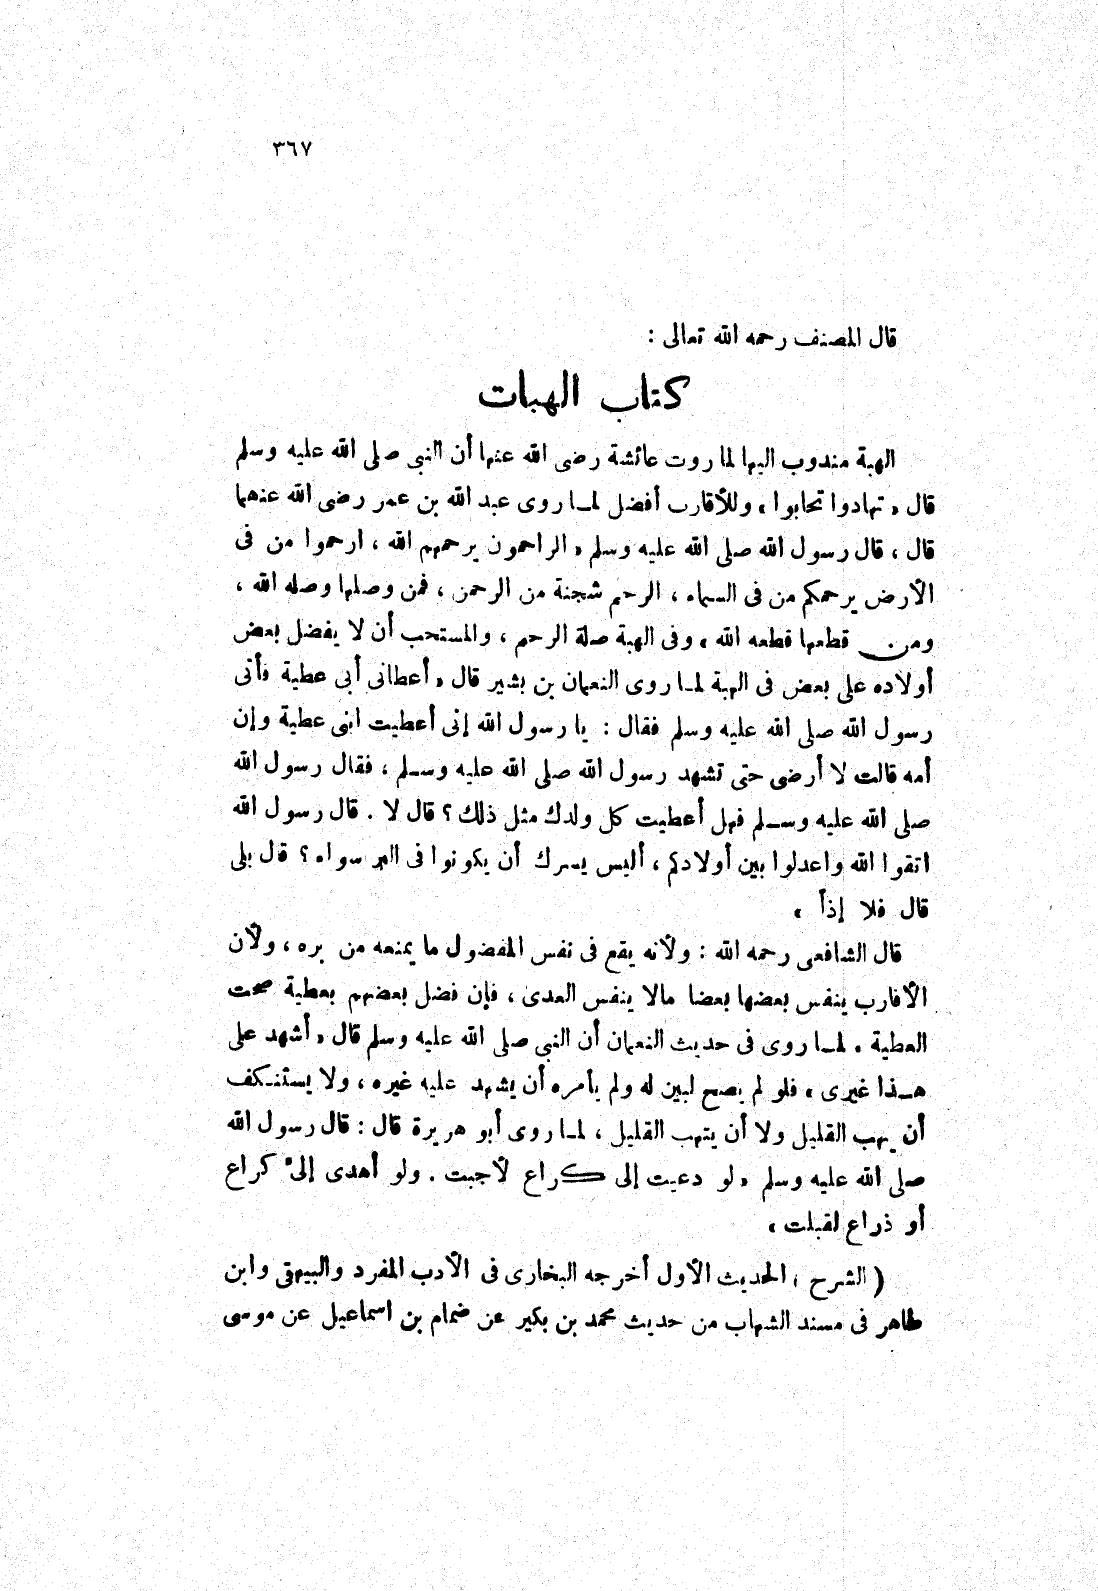 ٣٦٧
قال المصنف رحمه الله تعالى :
كتاب الهبات
الهبة مندوب اليها لما روت عائشة رضى الله عنها أن النبى صلى الله عليه وسلم
قال « تهادوا تحابوا » وللأقارب أفضل لمـا روى عبد الله بن عمر رضى الله عنهما
قال ، قال رسول الله صلى الله عليه وسلم « الراحمون يرحمهم الله ، ارحموا من فى
الأرض يرحمكم من فى السماء ، الرحم شجنة من الرحمن ، فمن وصلها وصله الله ،
ومن قطعها قطعه الله » وفى الهبة صلة الرحم ، والمستحب أن لا يفضل بعض
أولاده على بعض فى الهبة لمـا روى النعمان بن بشير قال « أعطانى أبى عطية فأتى
رسول الله صلى الله عليه وسلم فقال : يا رسول الله إنى أعطيت ابنى عطية وإن
أمه قالت لا أرضى حتى تشهد رسول الله صلى الله عليه وسـلم ، فقال رسول الله
صلى الله عليه وسـلم فهل أعطيت كل ولدك مثل ذلك ؟ قال لا . قال رسول الله
اتقوا الله واعدلوا بين أولادكم ، أليس يسرك أن يكونوا فى البر سواء ؟ قال بلى
قال فلا إذاً »
قال الشافعى رحمه الله : ولأنه يقع فى نفس المفضول ما يمنعه من بره ، ولأن
الأقارب ينفس بعضها بعضا مالا ينفس العدى ، فإن فضل بعضهم بعطية صحت
العطية . لمـا روى فى حديث النعمان أن النبى صلى الله عليه وسلم قال « أشهد على
هـذا غيرى » فلو لم يصح لبين له ولم يأمره أن يشهد عليه غيره ، ولا يستنـكف
أن يهب القليل ولا أن يتهب القليل ، لمـا روى أبو هريرة قال : قال رسول الله
صلى الله عليه وسلم « لو دعيت إلى كراع لأجبت . ولو أهدى إلى كراع
أو ذراع لقبلت »
( الشرح ) الحديث الأول أخرجه البخارى فى الأدب المفرد والبيهقى وابن
طاهر فى مسند الشهاب من حديث محمد بن بكير عن ضمام بن اسماعيل عن موسى